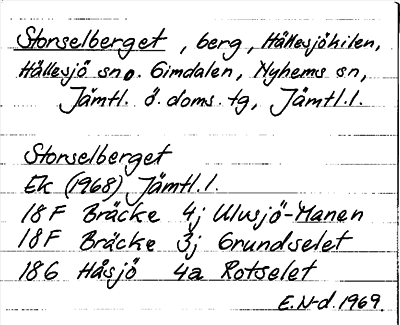 Stonselberget, berg, Hällesjökilen,
Hällesjö sno. Gimdalen, Nyhems sn,
Jämtl. ö. doms. tg, Jämtl. l.
Stonselberget
Ek (1968) Jämtl. l.
18F Bräcke 4j Ulvsjö-Manen
18F Bräcke 3j Grundselet
18G Håsjö 4a Rotselet
E.N-d. 1969.